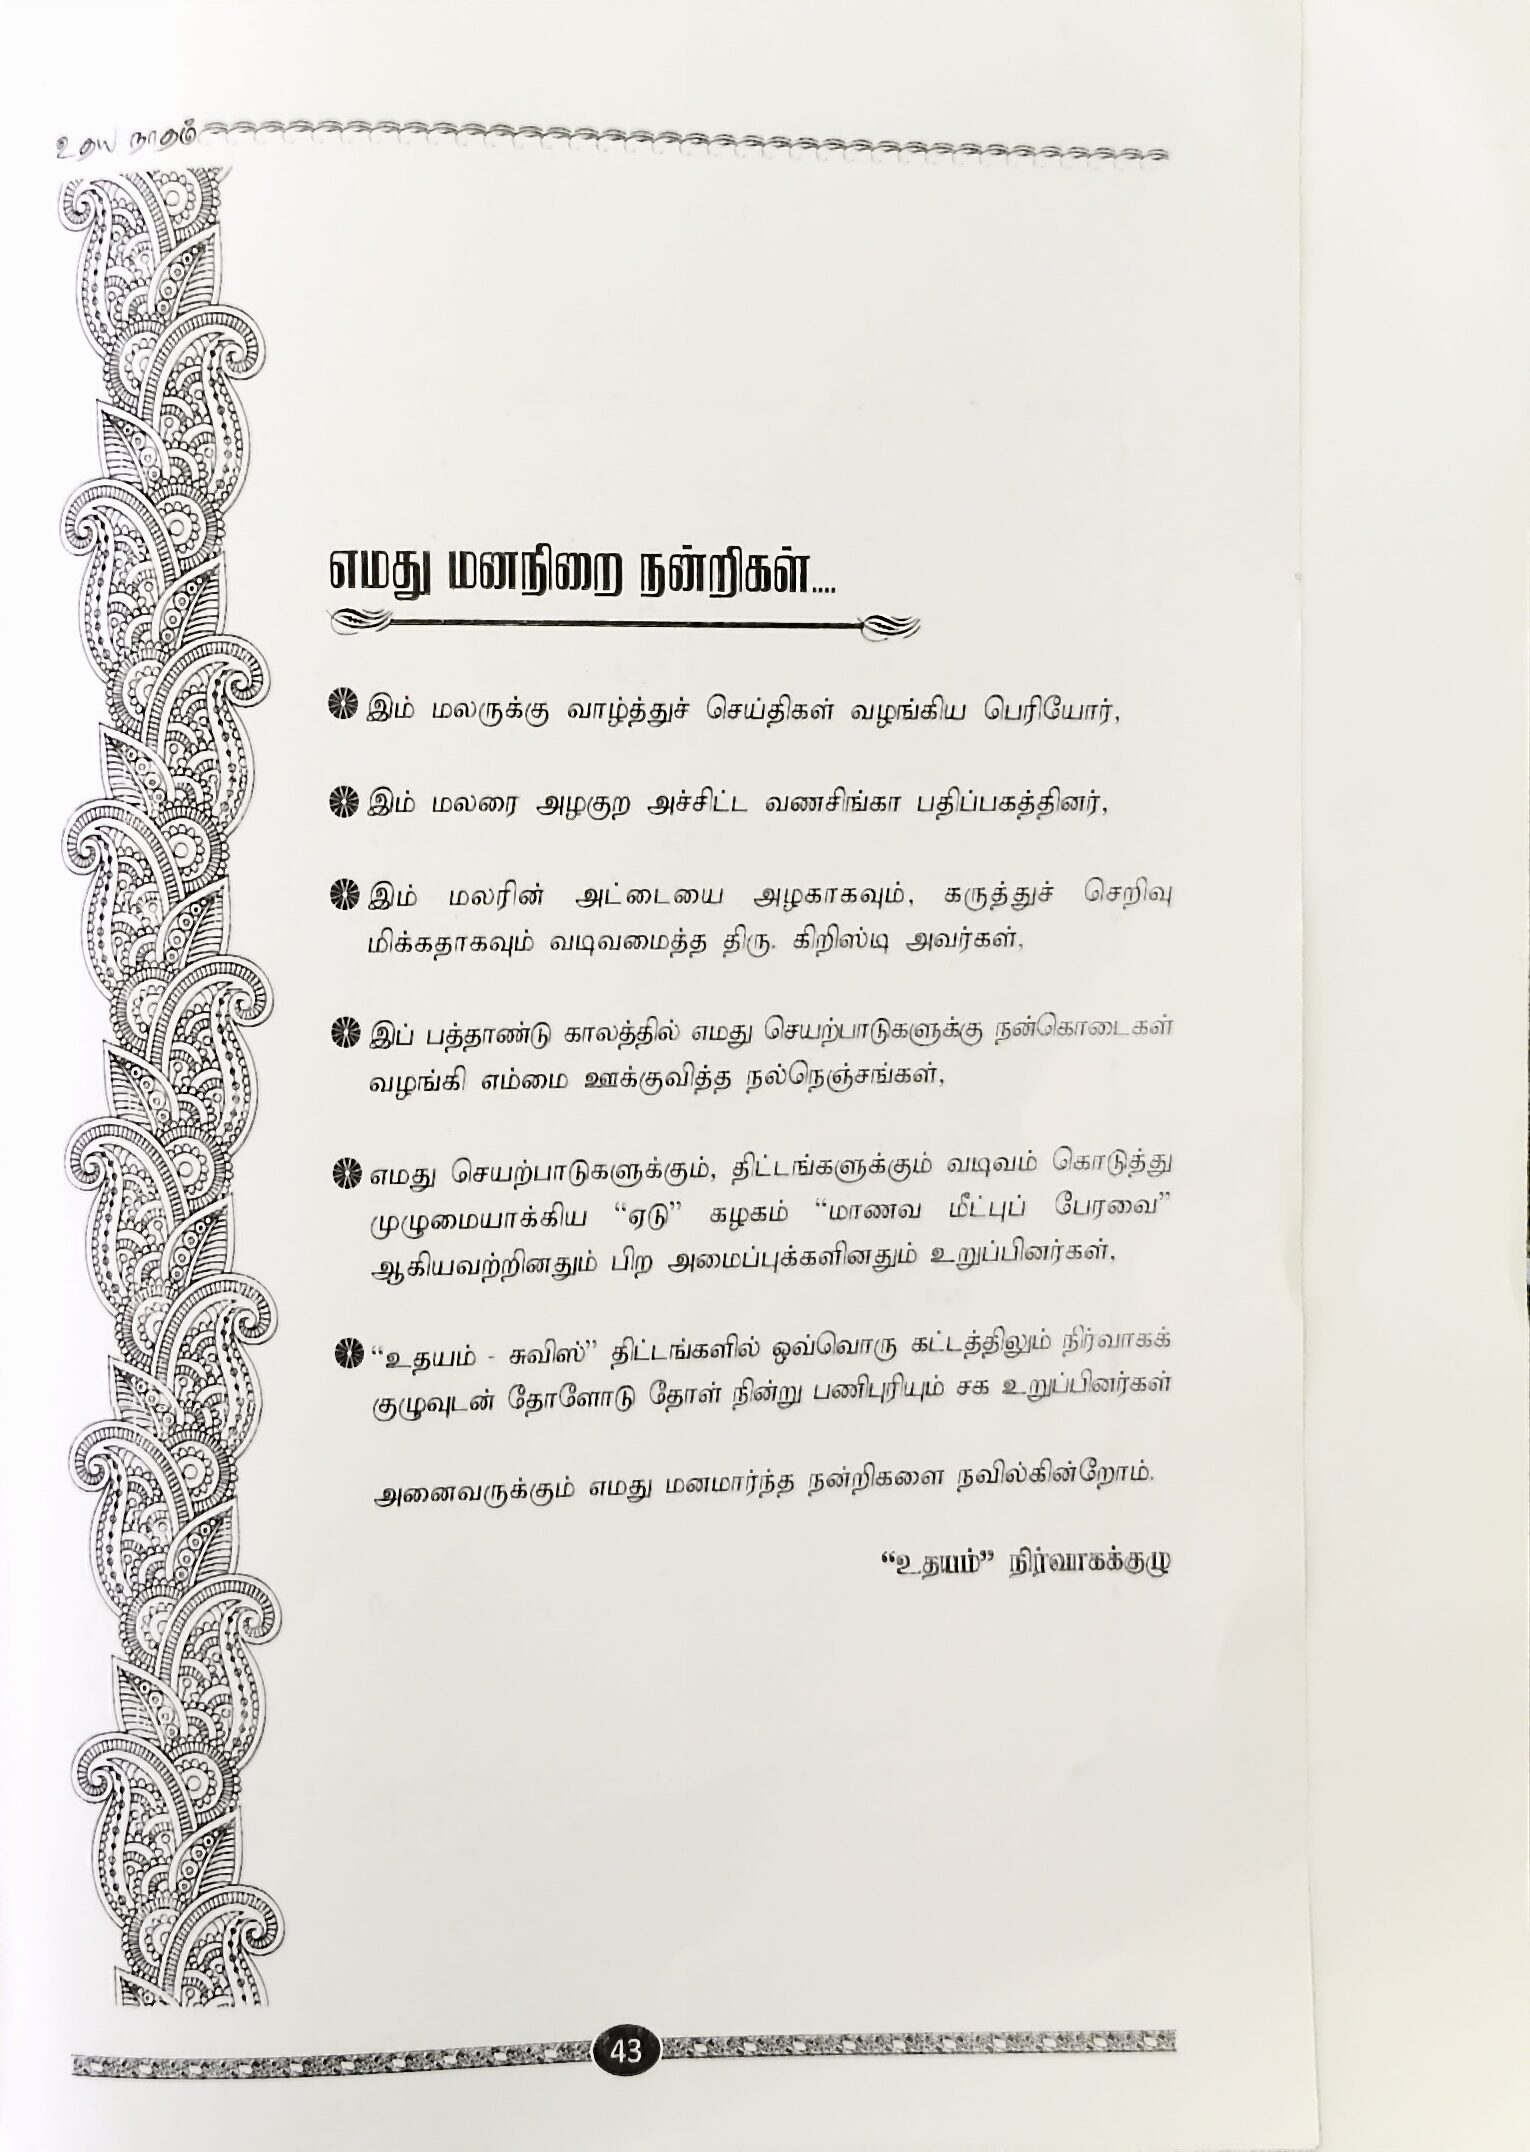 உதய நாதம்
எமது மனநிறை நன்றிகள்....
இம் மலருக்கு வாழ்த்துச் செய்திகள் வழங்கிய பெரியோர்,
இம் மலரை அழகுற அச்சிட்ட வணசிங்கா பதிப்பகத்தினர்,
இம் மலரின் அட்டையை அழகாகவும், கருத்துச் செறிவு
மிக்கதாகவும் வடிவமைத்த திரு. கிறிஸ்டி அவர்கள்,
இப் பத்தாண்டு காலத்தில் எமது செயற்பாடுகளுக்கு நன்கொடைகள்
வழங்கி எம்மை ஊக்குவித்த நல்நெஞ்சங்கள்,
எமது செயற்பாடுகளுக்கும், திட்டங்களுக்கும் வடிவம் கொடுத்து
முழுமையாக்கிய “ஏடு” கழகம் “மாணவ மீட்புப் பேரவை”
ஆகியவற்றினதும் பிற அமைப்புக்களினதும் உறுப்பினர்கள்,
“உதயம் - சுவிஸ்” திட்டங்களில் ஒவ்வொரு கட்டத்திலும் நிர்வாகக்
குழுவுடன் தோளோடு தோள் நின்று பணிபுரியும் சக உறுப்பினர்கள்
அனைவருக்கும் எமது மனமார்ந்த நன்றிகளை நவில்கின்றோம்.
“உதயம்” நிர்வாகக்குழு
43